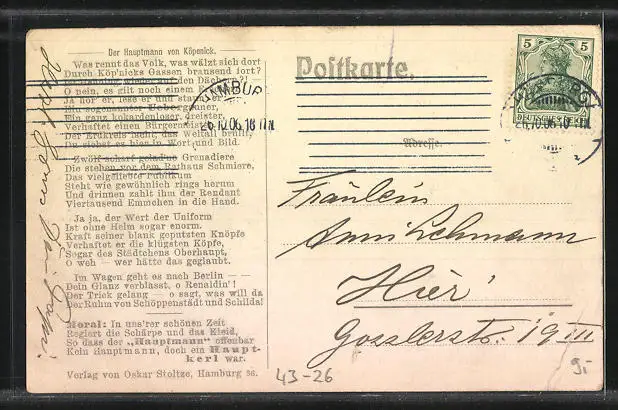 Der Hauptmann von Köpenick.
Was rennt das Volk, was wälzt sich dort
Durch Köp'nicks Gassen brausend fort?
O nein, es gilt noch einem
Ja hör' er, lese er und staune
Ein sogenannter Ueber
Ein ganz kokardenloser, dreister,
Verhaftet einen Bürgermeister
Der Erdkreis lacht, das Weltall brüllt,
Du siehst es hier in Wort und Bild.
Zwölf scharf gelad'ne Grenadiere
Die stehen vor dem Rathaus Schmiere,
Das vielgeliebte Publikum
Steht wie gewöhnlich rings herum
Und drinnen zahlt ihm der Rendant
Viertausend Emmchen in die Hand.
Ja ja, der Wert der Uniform
Ist ohne Helm sogar enorm.
Kraft seiner blank geputzten Knöpfe
Verhaftet er die klügsten Köpfe,
Sogar des Städtchens Oberhaupt,
O weh — wer hätte das geglaubt.
Im Wagen geht es nach Berlin — —
Dein Glanz verblasst, o Renaldin'!
Der Trick gelang — o sagt, was will da
Der Ruhm von Schöppenstädt und Schilda!
Moral: In uns'rer schönen Zeit
Regiert die Schärpe und das Kleid,
So dass der „Hauptmann" offenbar
Kein Hauptmann, doch ein Haupt-
kerl war.
Verlag von Oskar Stoltze, Hamburg 36.
Postkarte.
Adresse.
HAMBURG
26.10.06.
5 5
DEUTSCHES REICH
26.10.06.10
Fräulein
Anni Lehmann
Hier
Gosslerstr. 19 III
43-26
9.-